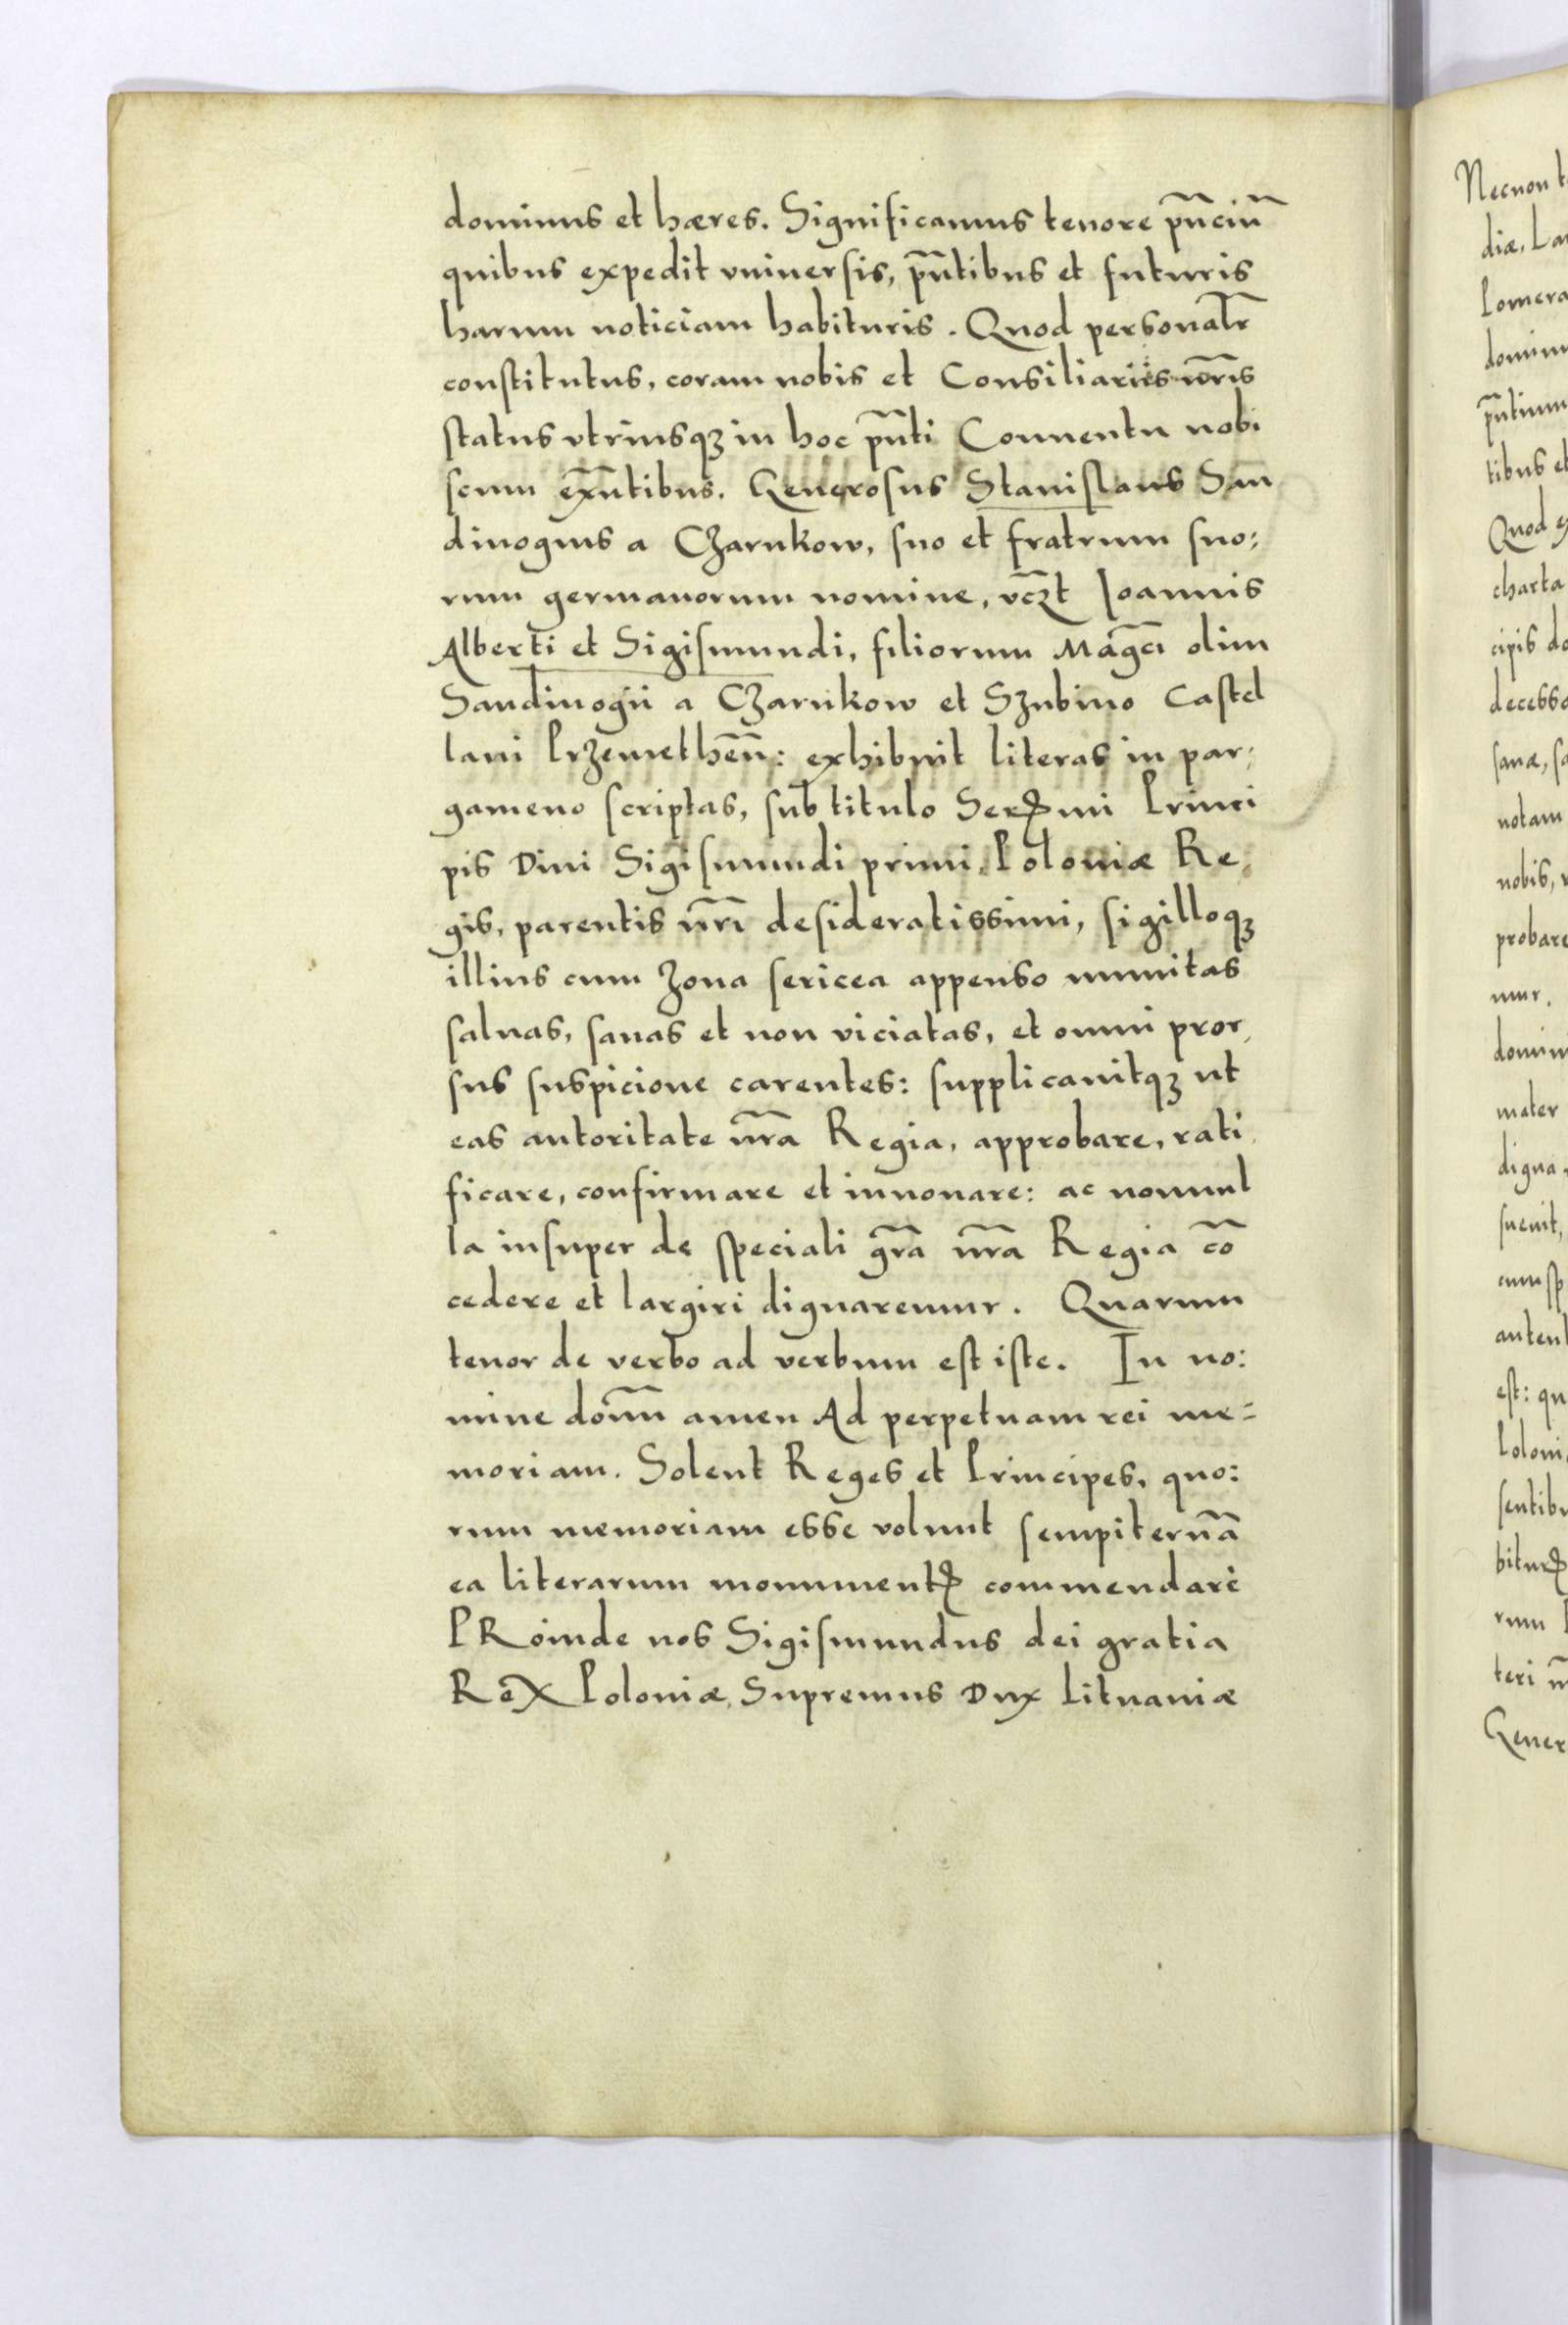 dominus et hæres. Significamus tenore pn̄ciu᷈
quibus expedit vniuersis, pn̄tibus et futuris
harum noticiam habituris. Quod personalr̄
constitutus, coram nobis et Consiliariis nr̄is
status vtriusqꝫ in hoc pn̄ti Conuentu nobi
scum exn̄tibus. Generosus Stanislaus San
diuogius a Czarnkow, suo et fratrum suo:
rum germanorum nomine, vcꝫt Ioannis
Alberti et Sigismundi, filiorum Magc̄i olim
Sandiuogii a Czarnkow et Szubino Castel
lani Przemethen̄: exhibuit literas in par,
gameno scriptas, sub titulo Serꝫmi Princi
pis Diui Sigismundi primi, Poloniæ Re,
gis, parentis nr̄i desideratissimi, sigilloqꝫ
illius cum zona sericea appenso munitas
saluas, sanas et non viciatas, et omni pror,
sus suspicione carentes: supplicauitqꝫ ut
eas autoritate nr̄a Regia, approbare, rati,
ficare, confirmare et innouare: ac nonnul
la insuper de speciali gr̄a nr̄a Regia cō
cedere et largiri dignaremur. Quarum
tenor de verbo ad verbum est iste. In no:
mine don̄i amen Ad perpetuam rei me=
moriam. Solent Reges et Principes, quo:
rum memoriam esse volunt sempiternā
ea literarum monumentꝭ commendare
PRoinde nos Sigismundus dei gratia
ReX Poloniæ, Supremus Dux Lituaniæ
Necnon
diæ.
Pomera
domin
pn̄tium
tibus et
Quod
charta
cipis
decesso
sanæ,
notam
nobis,
probare
mur.
domin
mater
digna,
sueuit,
cum sp
autent
est: qu
Poloni
sentib
biturꝭ
rum
teri
Gener